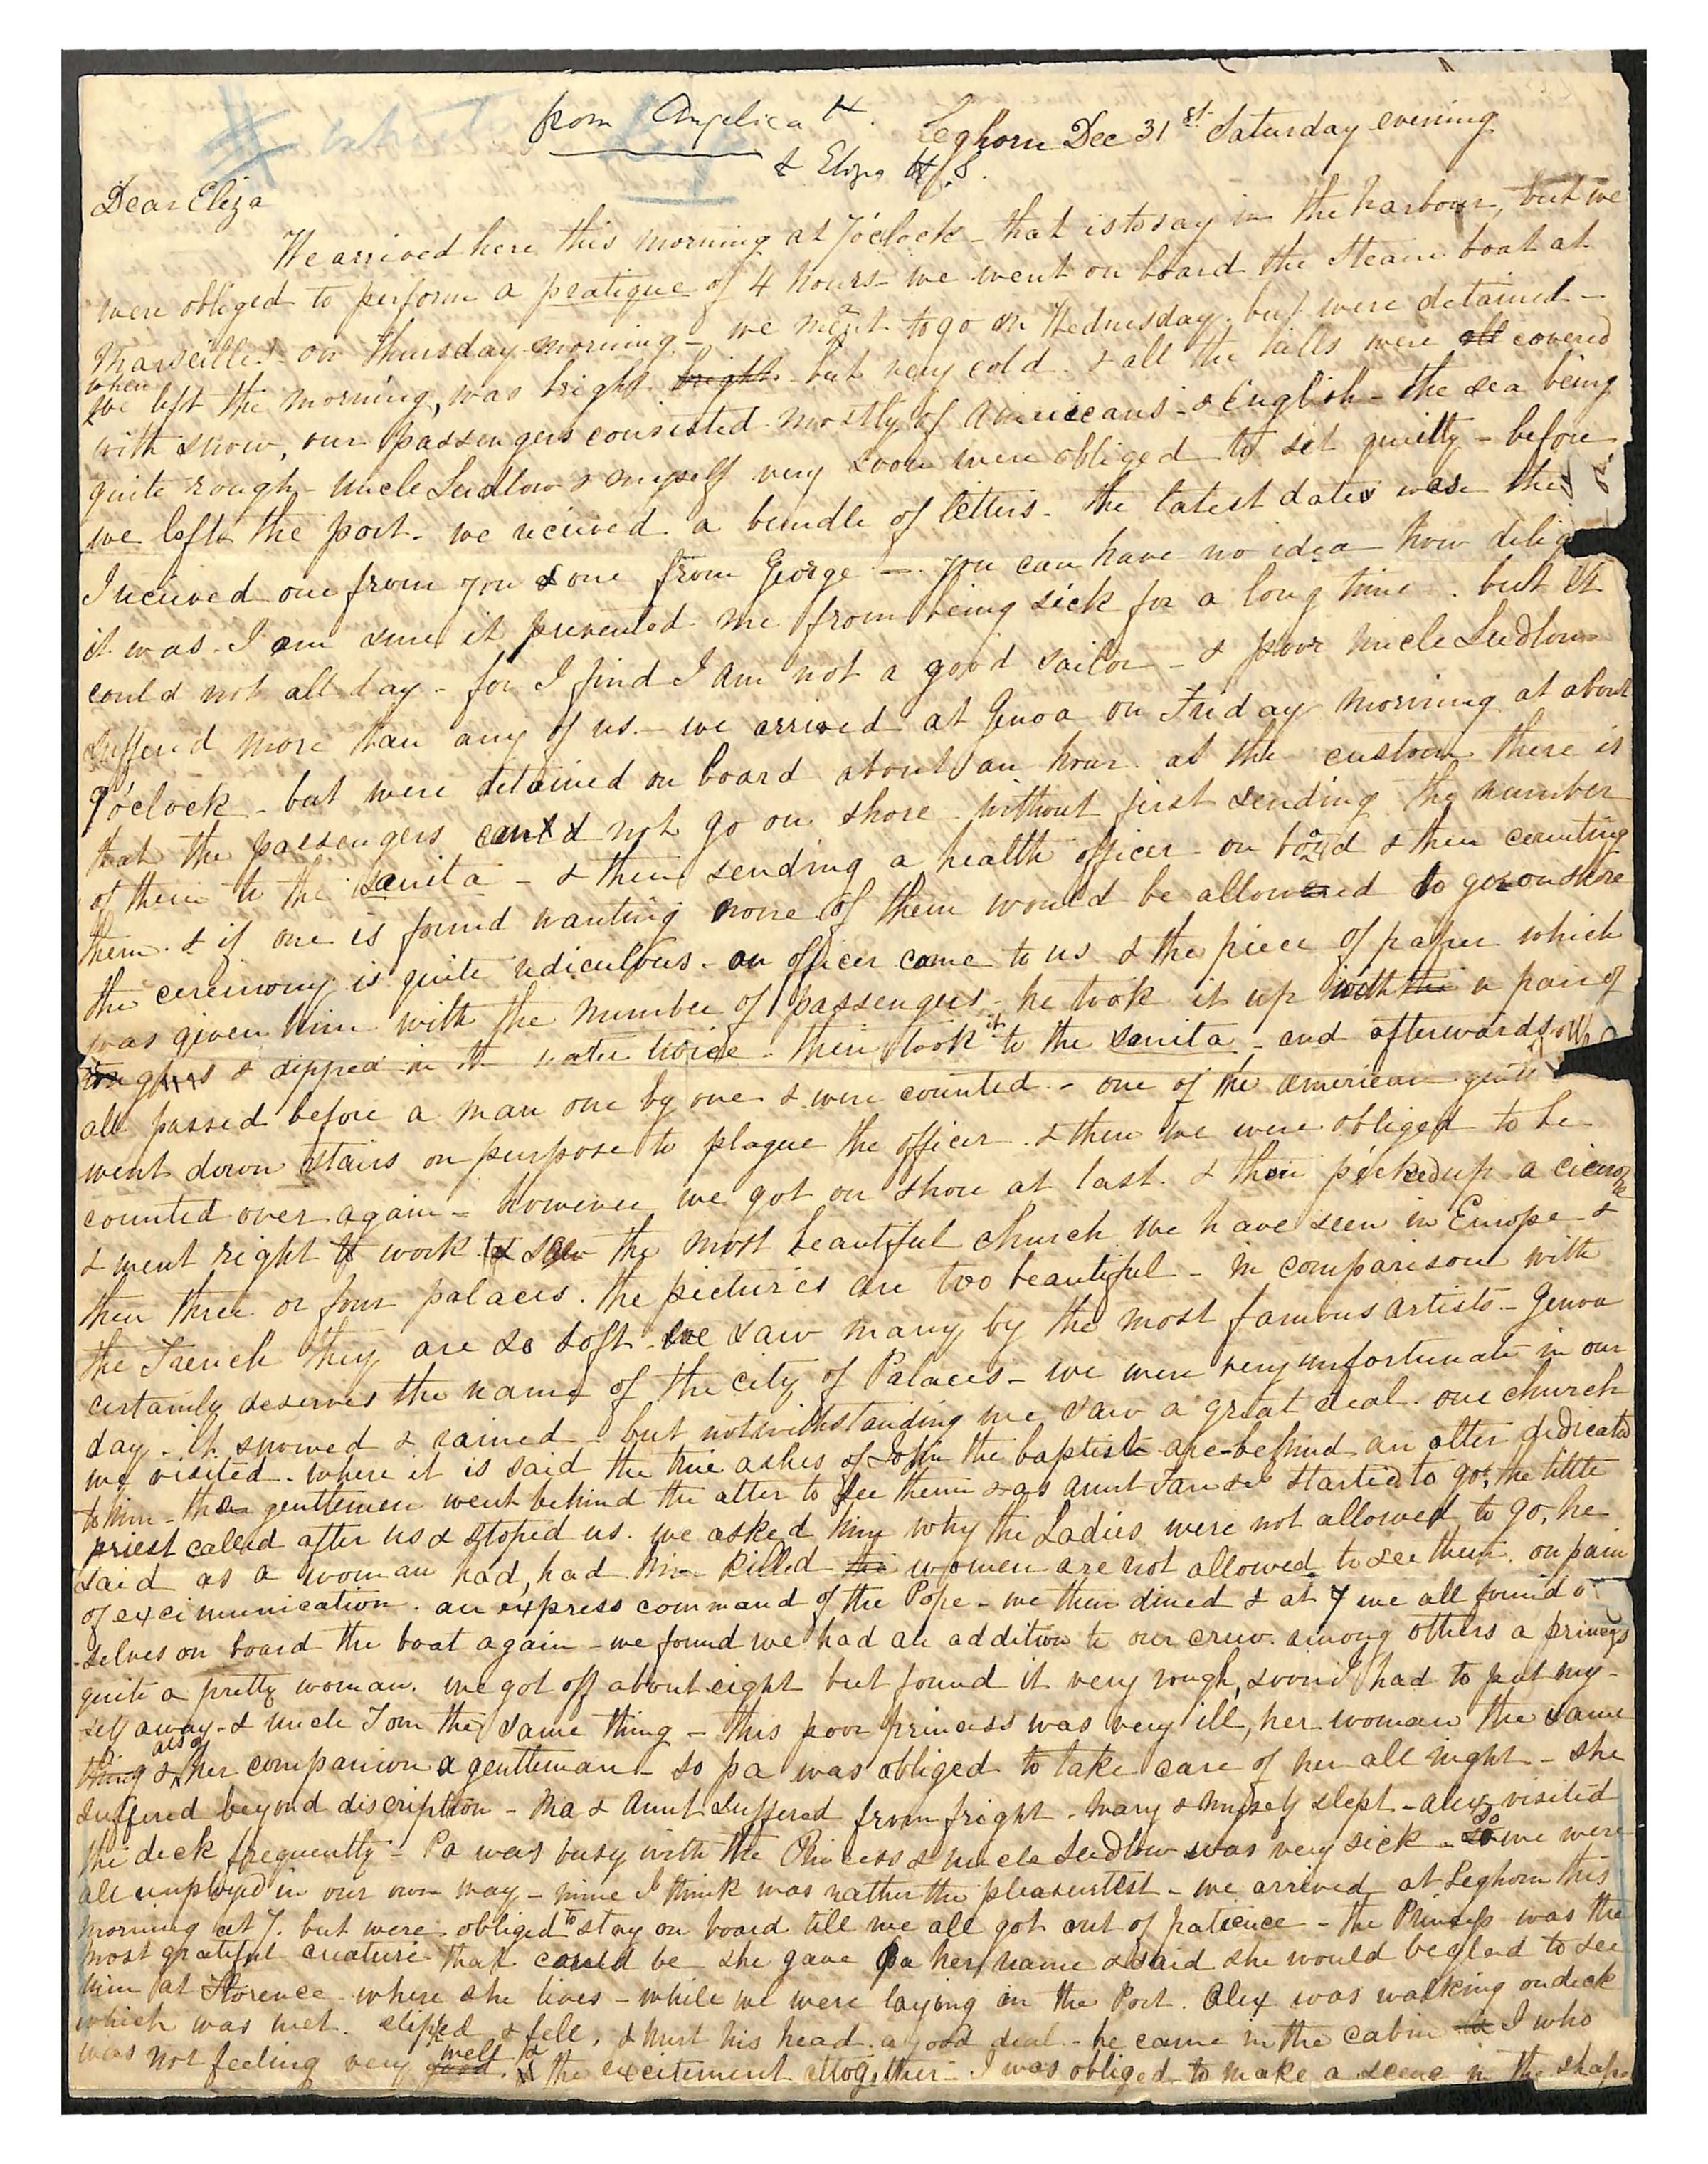 from Angelica H.
& Eliza H. S.
Leghorn Dec 31st Saturday evening
Dear Eliza
We arrived here this morning at 7 o'clock - that is to say in the harbour, but we
were obliged to perform a pratique of 4 hours - we went on board the Steam boat at
Marseilles - on Thursday morning - we meant to go on Wednesday. but were detained -
when we left the morning, was bright bright but very cold. & all the hills were all covered
with snow, our passengers consisted mostly of Americans - & English - the sea being
quite rough - Uncle Ludlow & myself very soon were obliged to sit quietly - before
we left the port - we recieved a bundle of letters - the latest dates was the
I recieved one from you & one from George - you can have no idea how
it was - I am sure it prevented me from being sick for a long time - but it
could not all day - for I find I am not a good sailor - & poor Uncle Ludlow
suffered more than any of us. - we arrived at Genoa on Friday morning at about
9 o'clock - but were detained on board about an hour. as the custom there is
that the passengers could not go on shore without first sending the number
of them to the Sanita - & then sending a health officer on board & then counting
them. & if one is found wanting none of them would be allowed to go on shore
the ceremony is quite ridiculous - an officer came to us & the piece of paper which
was given him with the number of passengers - he took it up with the a pair of
tongs & dipped in the water twice - then took it to the Sanita - and afterwards we
all passed before a man one by one & were counted - one of the American
went down stairs on purpose to plague the officer. & then we were obliged to be
counted over again - however we got on shore at last. & then picked up a cicerone
& went right to work & saw the most beautiful church we have seen in Europe - &
then three or four palaces. the pictures are too beautiful - in comparison with
the French they are so soft - we saw many by the most famous artists - Genoa
certainly deserves the name of the city of Palaces - we were very unfortunate in our
day - it snowed & rained - but notwithstanding we saw a great deal. one church
we visited. where it is said the true ashes of John the baptist are behind an alter dedicated
to him - the gentlemen went behind the alter to see them & as Aunt started to go, the little
priest caleed after us & stoped us. we asked him why the Ladies were not allowed to go, he
said as a woman had, had him killed the women are not allowed to see them. on pain
of excimmunication. an express command of the Pope - we then dined & at 7 we all found
-selves on board the boat again - we found we had an addition to our crew. among others a princess
quite a pretty woman. we got off about eight but found it very rough, soon I had to put my-
self away - & Uncle Tom the same thing - this poor princess was very ill, her woman the same
thing & also her companion a gentleman - so pa was obliged to take care of her all night - she
suffered beyond discription - Ma & Aunt suffered from fright - Mary & myself slept - Alex visited
the deck frequently - Pa was busy with the Princess & Uncle Ludlow was very sick - so we were
all employed in our own way - mine I think was rather the pleasentest - we arrived at Leghorn this
morning at 7. but were obliged to stay on board till we all got out of patience - the Princess was the
most grateful creature that could be she gave Pa her name & said she would be glad to see
him at Florence where she lives - while we were laying in the Port. Alex was walking on deck
which was wet. slipped & fell, & hurt his head a good deal - he came in the cabin & I who
was not feeling very good. well & the excitement alltogether - I was obliged to make a scene in the shape